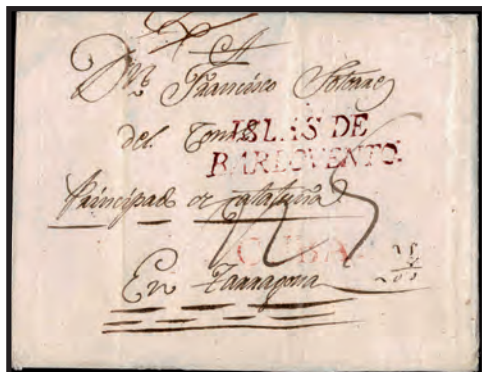 A
Dn. Francisco
del
ISLAS DE
BARLOVENTO.
Principado de Cataluña
15
CUBA
En Tarragona